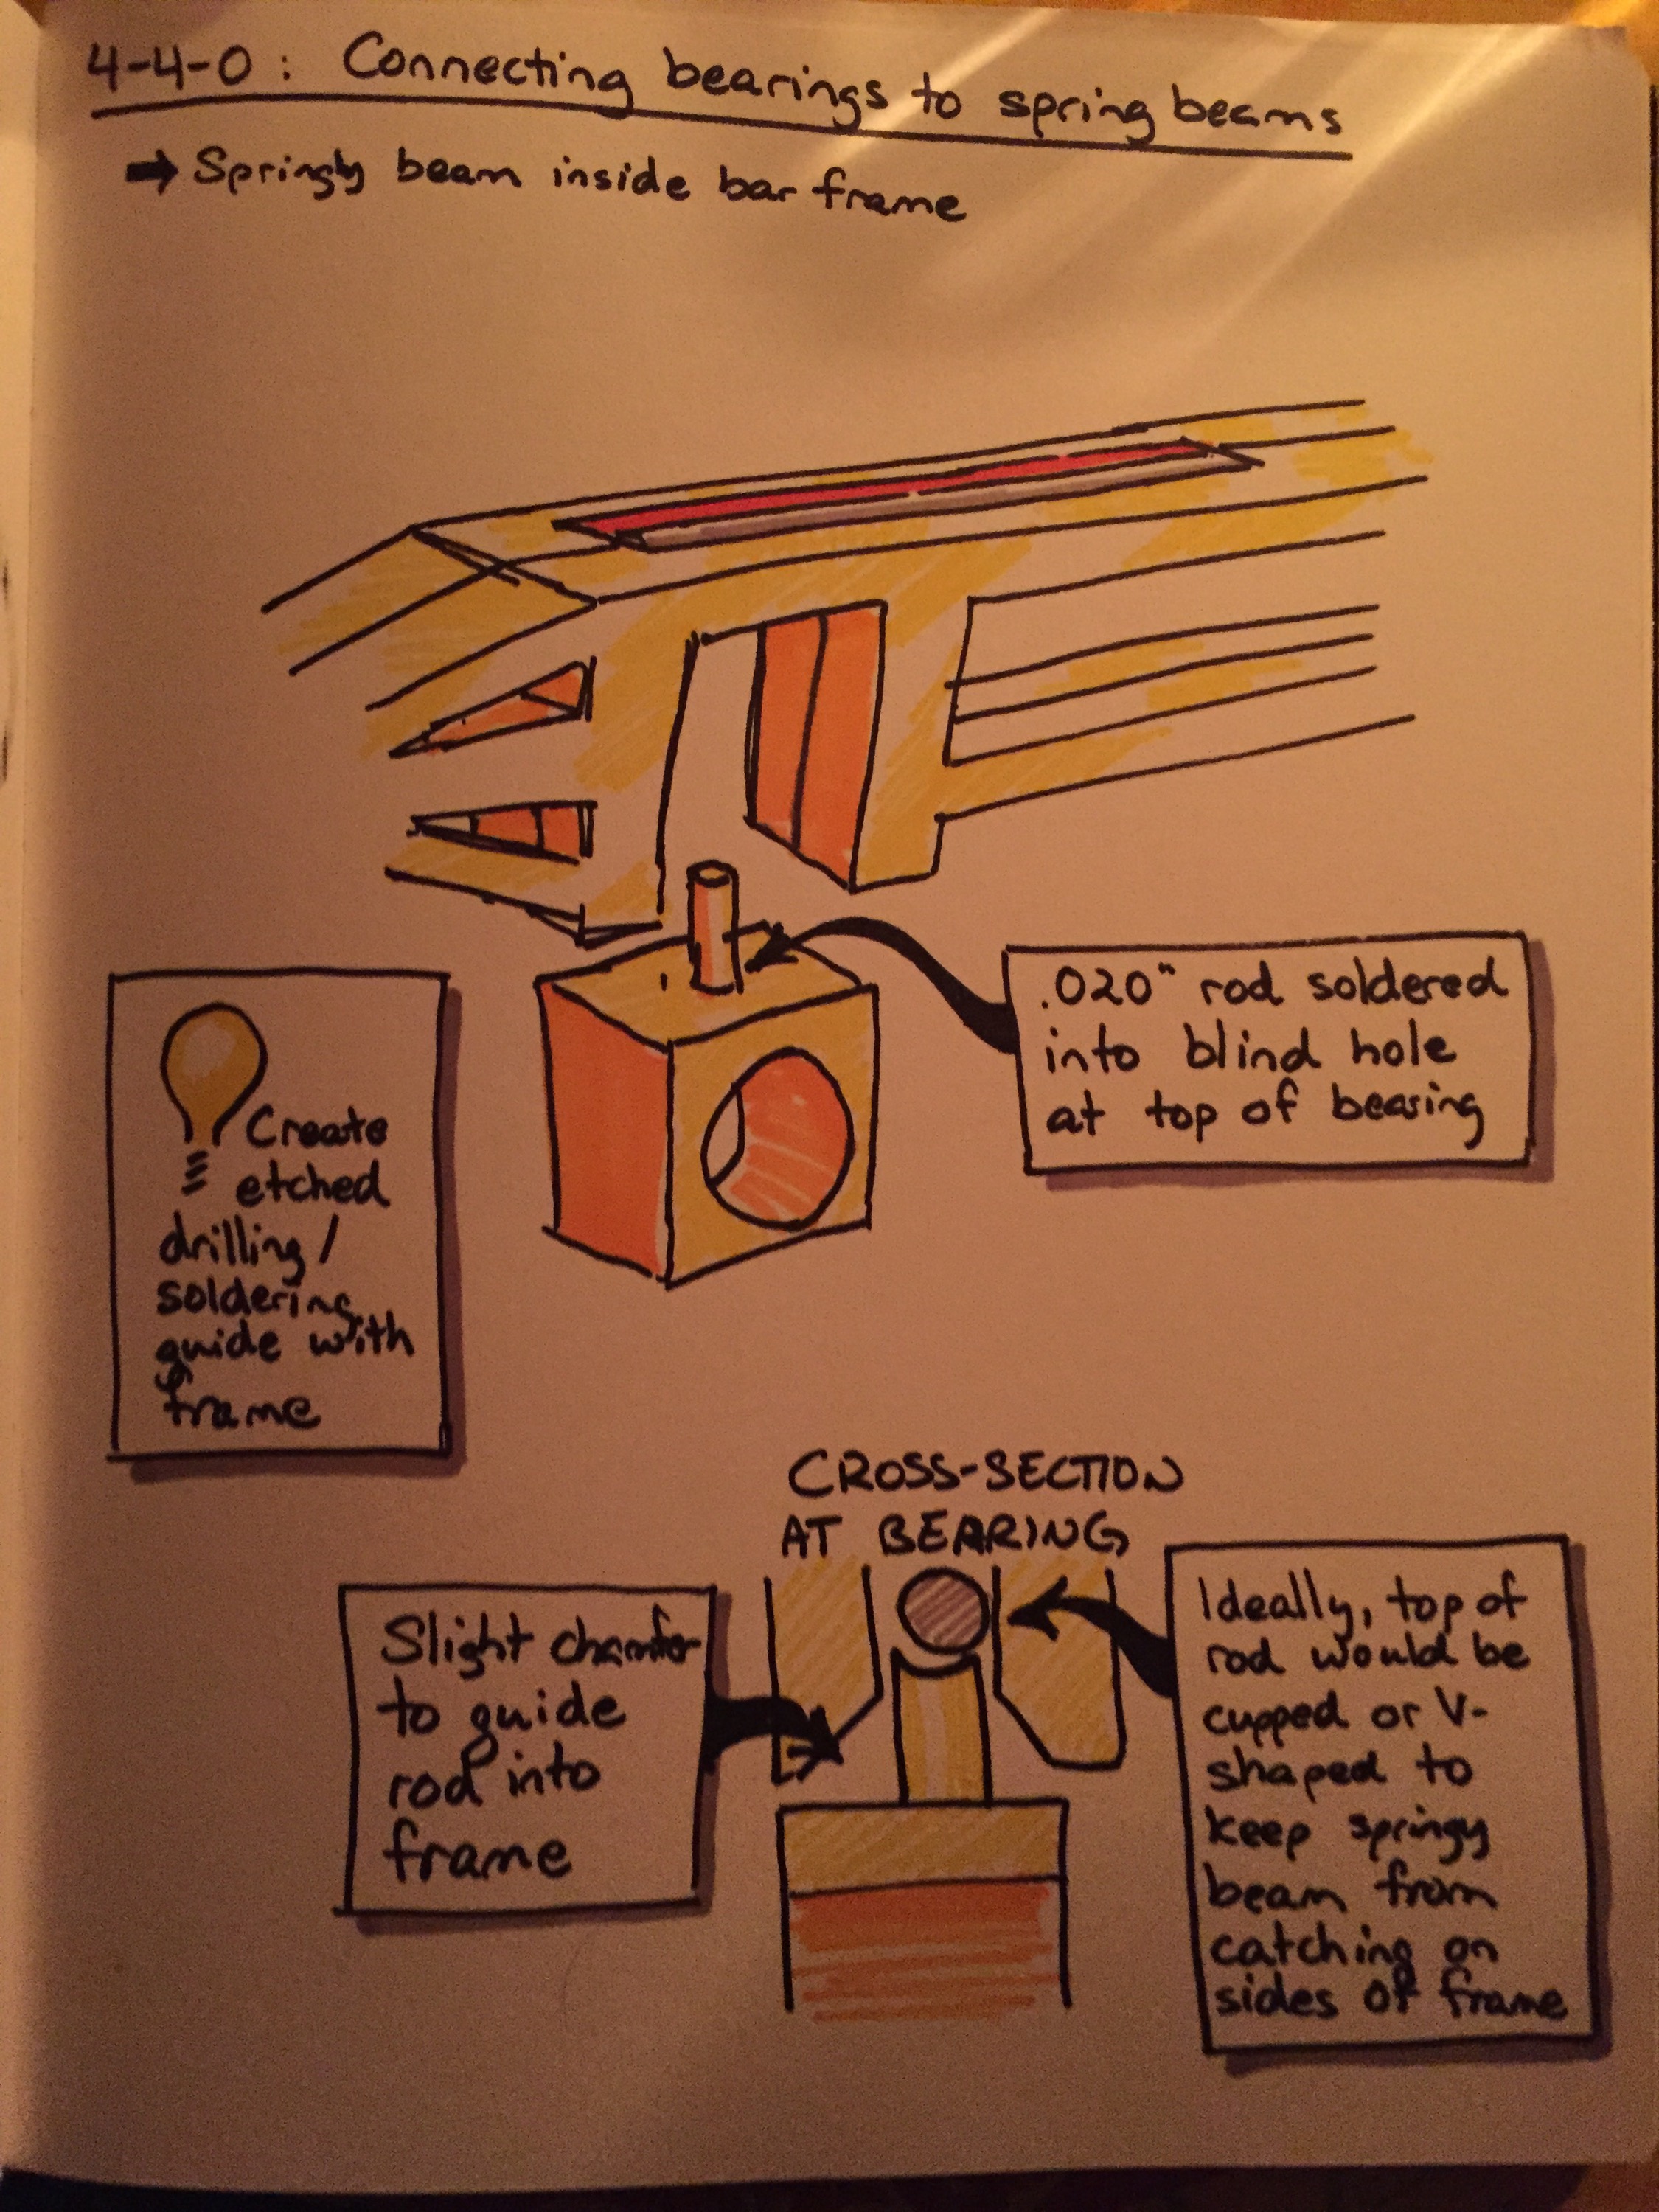 4-4-0: Connecting bearings to spring beams
➡ Springy beam inside bar frame
.020" rod soldered
into blind hole
at top of bearing
Create
etched
drilling/
soldering
guide with
frame
CROSS-SECTION
AT BEARING
Slight chamfer
to guide
rod into
frame
Ideally, top of
rod would be
cupped or V-
shaped to
keep springy
beam from
catching on
sides of frame